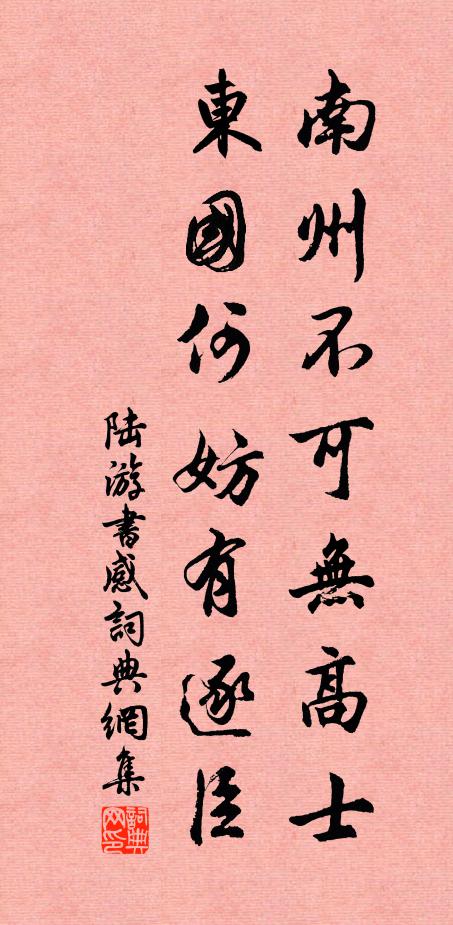 南州不可無高士
東國何妨有逐臣
陆游書感詞典網集
詞典网印